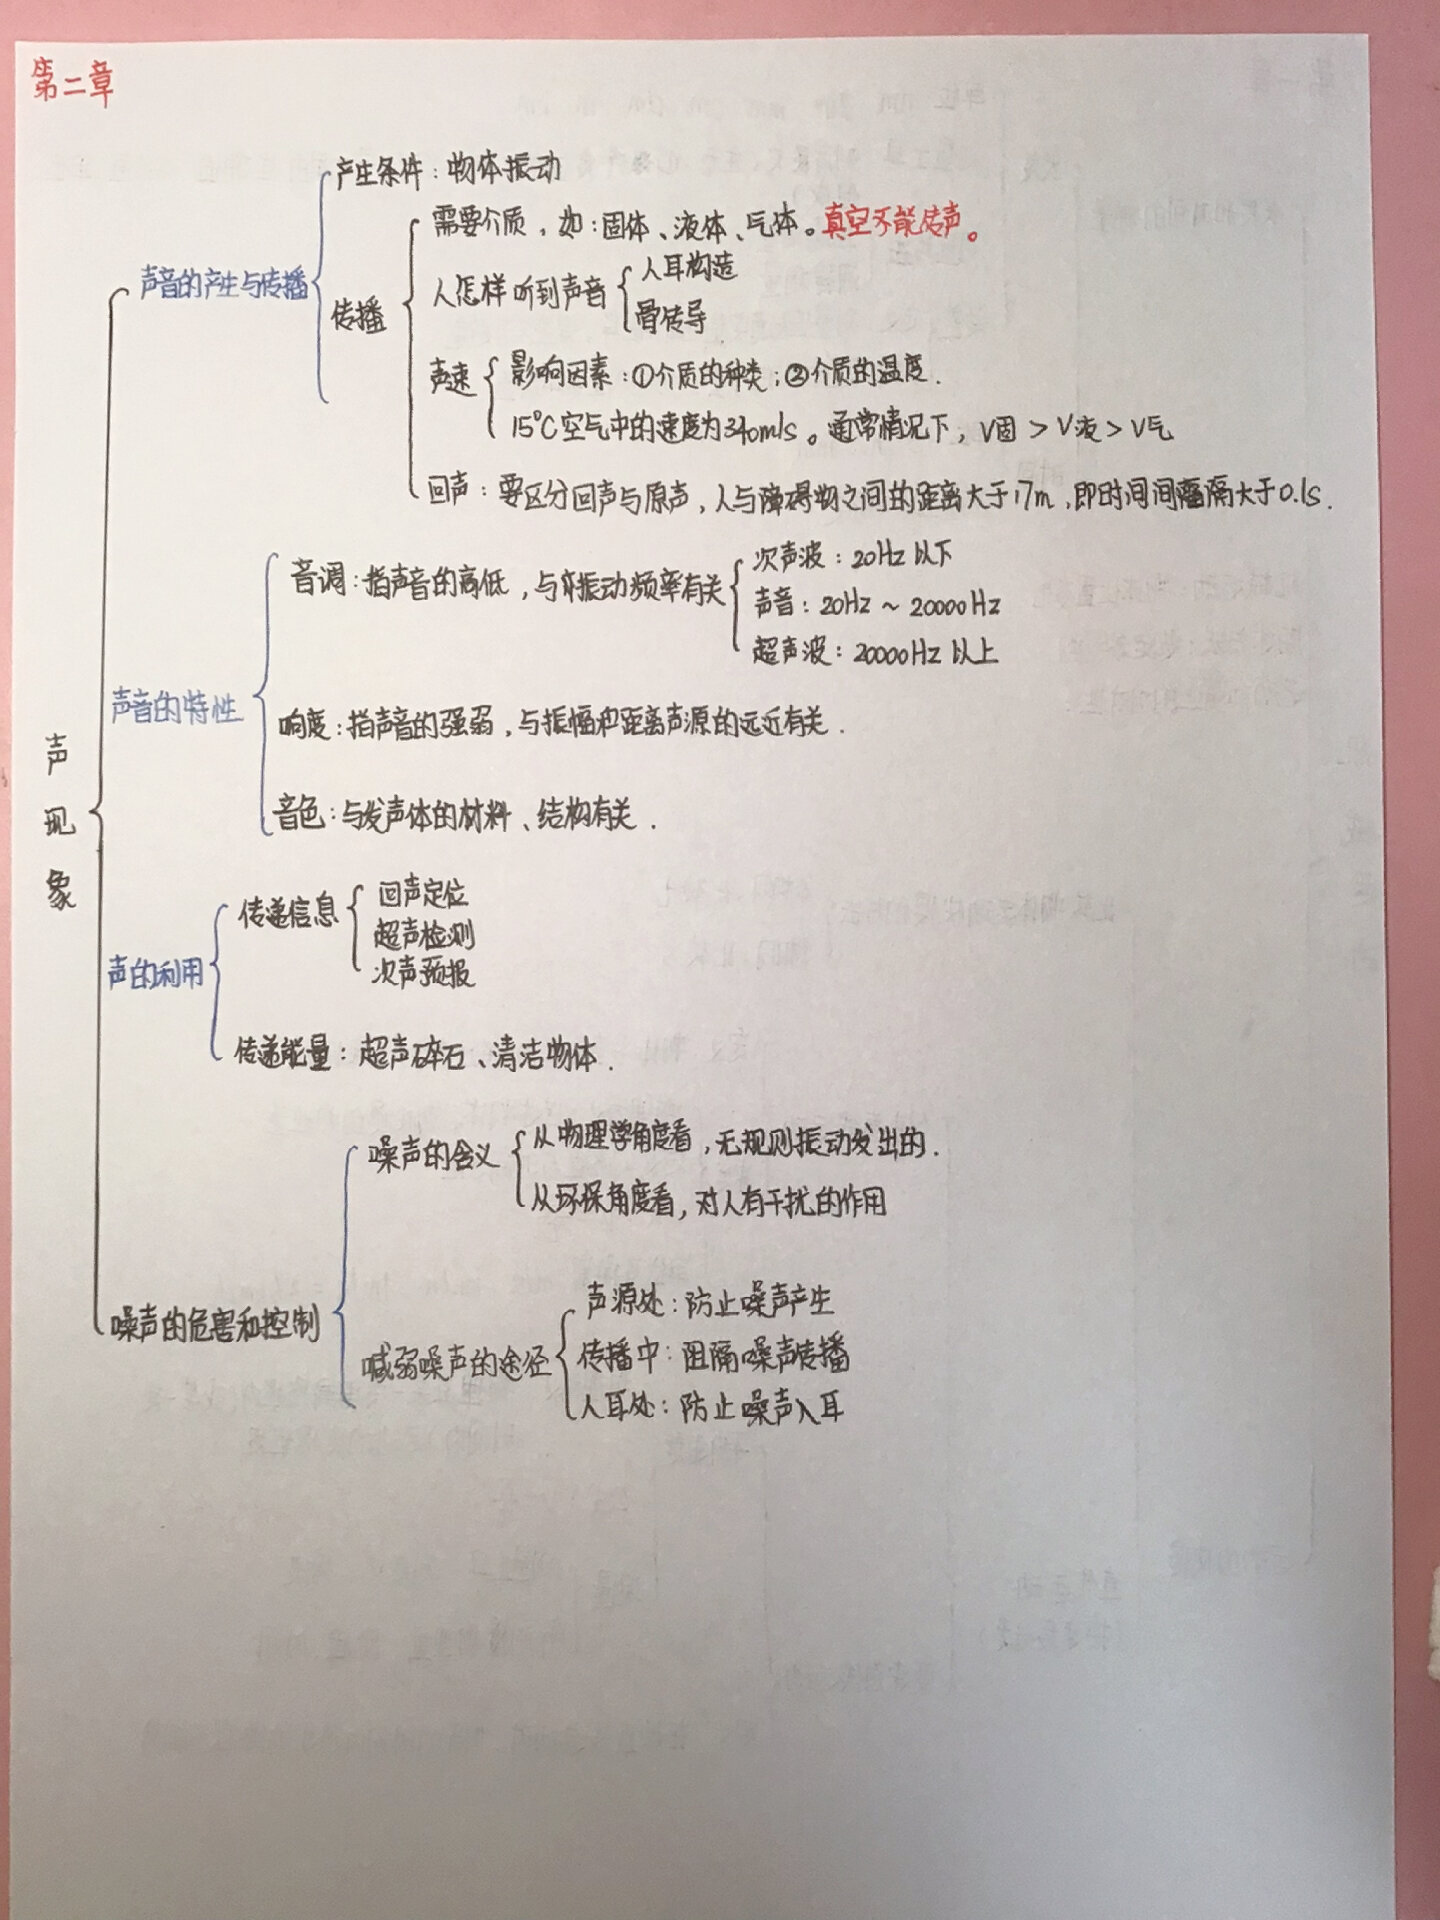 第二章
产生条件：物体振动
需要介质，如：固体、液体、气体。真空不能传声。
声音的产生与传播
传播
人怎样听到声音
人耳构造
骨传导
声速
影响因素：①介质的种类；②介质的温度.
15°C空气中的速度为340m/s。通常情况下，V固 > V液 > V气
回声：要区分回声与原声，人与障碍物之间的距离大于17m，即时间间隔大于0.1s.
声现象
声音的特性
音调：指声音的高低，与振动频率有关
次声波：20Hz以下
声音：20Hz～20000Hz
超声波：20000Hz以上
响度：指声音的强弱，与振幅和距离声源的远近有关.
音色：与发声体的材料、结构有关.
声的利用
传递信息
回声定位
超声检测
次声预报
传递能量：超声碎石、清洁物体.
噪声的危害和控制
噪声的含义
从物理学角度看，无规则振动发出的.
从环保角度看，对人有干扰的作用
减弱噪声的途径
声源处：防止噪声产生
传播中：阻隔噪声传播
人耳处：防止噪声入耳